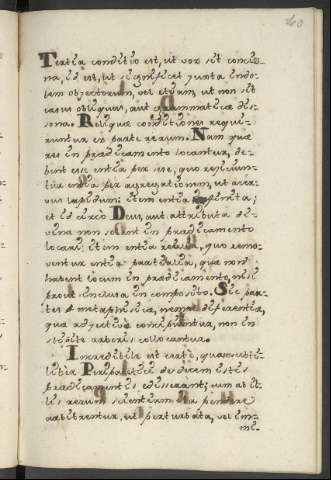 40
Tertia conditio est, ut vox sit concin-
na, id est, ut significet juxta indo-
lem objectorum, vel etiam, ut non sit
casus obliquus, aut grammaticæ dis-
sona. Reliquæ conditiones requi-
runtur ex parte rerum. Nam quæ
res in prædicamento locantur, de-
bent esse entia per se, quo rejiciun-
tur entia per aggregationem, ut acer-
vus lapidum: item entia infinita;
et ideirco Deus, aut attributa di-
vina non solent in prædicamento
locari; item entia realia, quo remo-
ventur entia partialia, quæ non
habent locum in prædicamento, nisi
prout inclusa in composito. Sic par-
tes metaphysicæ, nempe differentia,
quia adjective concipiuntur, non in
recto
collocantur.
Incredibile est certe, quam subti-
liter Peripatetici de decem istis
prædicamentis, edisserant; cum ab il-
lis rerum scientiam pendere
arbitrentur, et perturbata, vel im-
me-